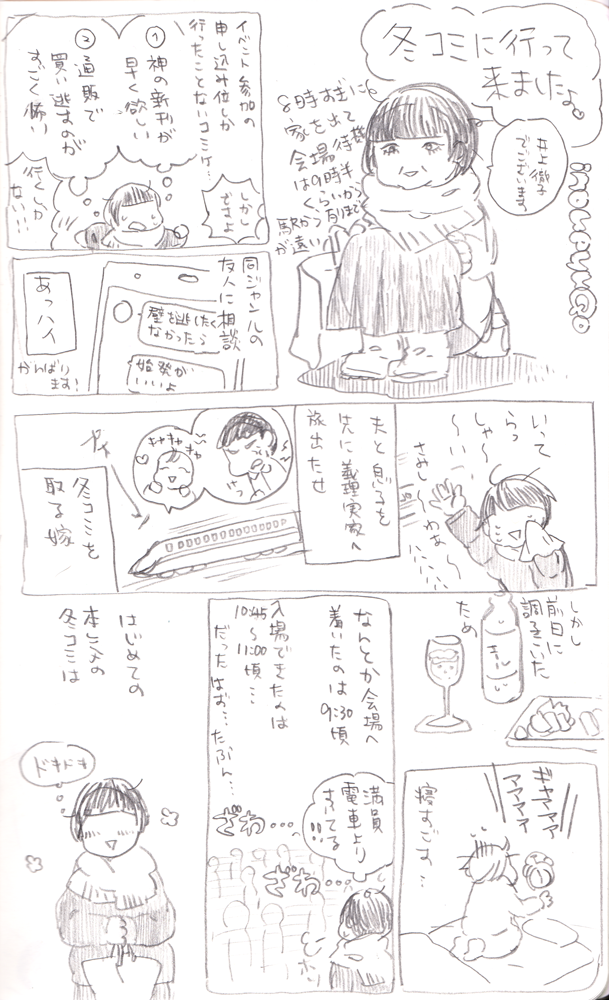 冬コミに行って
来ましたよ。
井上徹子
でございます
8時すぎに
家を出て
会場待機
は9時半
くらいから
駅から
が遠い
イベント参加の
申し込み位しか
行ったことないコミケ…
しかし
ですよ
①
神の新刊が
早く欲しい
②
通販で
買い逃すのが
すごく怖い
行くしか
ない…!
同ジャンルの
友人に相談
壁を逃したく
なかったら
始発が
いいよ
あっハイ
がんばり
ます!
いって
らっ
しゃ〜
〜い
さみし〜わぁ〜
ハハハハ
夫と息子を
先に義理実家へ
旅出たせ
キャキャ
キャ
冬コミを
取る嫁
しかし
前日に
調子こいた
ため
ギャアァァ
アァァァ
寝すごす…
なんとか会場へ
着いたのは
9:30
頃
入場できたのは
10:45
〜
11:00
頃…
だったはず…たぶん…
満員
電車より
すいてる
ざわ…
ざわ…
はじめての
本気の
冬コミは
ドキドキ